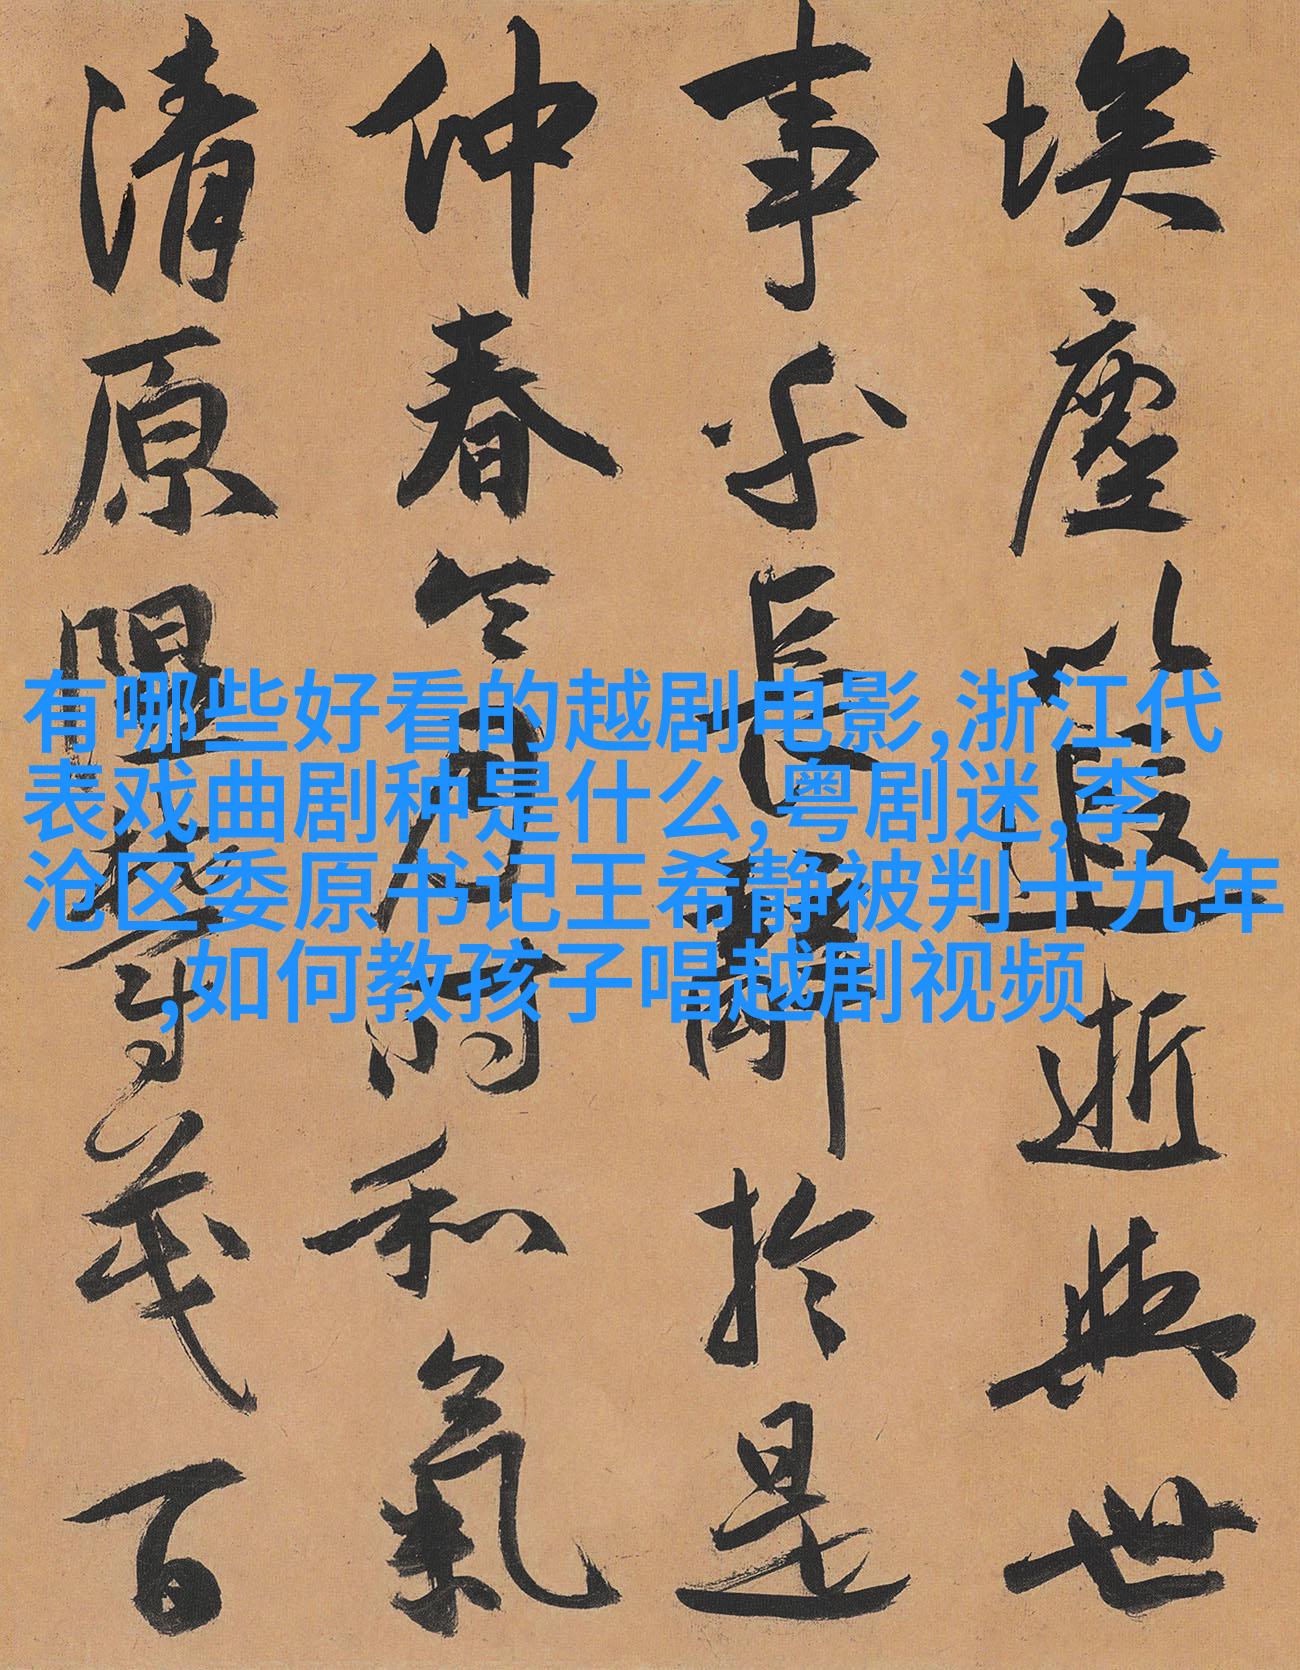 埃塵以遐逝與世
事乎長辭於是
仲春令月時和氣
清原隰鬱茂百
有哪些好看的越剧电影,浙江代
表戏曲剧种是什么,粤剧迷,李
沧区委原书记王希静被判十九年
,如何教孩子唱越剧视频